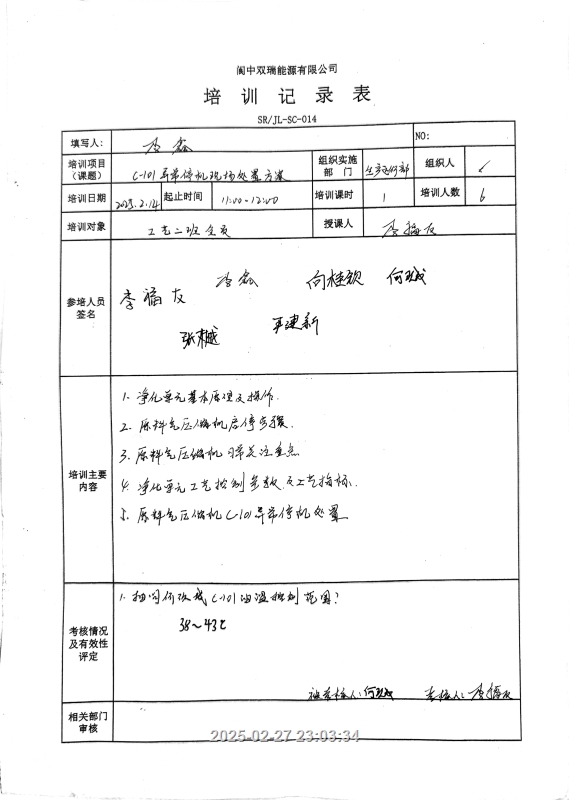 阆中双瑞能源有限公司
培训记录表
SR/JL-SC-014
填写人: 李鑫 NO:
培训项目（课题） C-101异常停机现场处置方案 组织实施部门 生产运行部 组织人
培训日期 2025.2.14 起止时间 11:00-12:00 培训课时 1 培训人数 6
培训对象 工艺二班全员 授课人 李福友
参培人员签名
李福友 李鑫 向桂钦 何政成
张越 王建新
培训主要内容
1. 净化单元基本原理及操作.
2. 原料气压缩机启停步骤.
3. 原料气压缩机日常关注重点
4. 净化单元工艺控制参数及工艺指标.
5. 原料气压缩机C-101异常停机处置
考核情况及有效性评定
1. 抽问何政成C-101油温控制范围?
38～43℃
被考核人:何政成 考核人:李福友
相关部门审核
2025-02-27 23:03:34